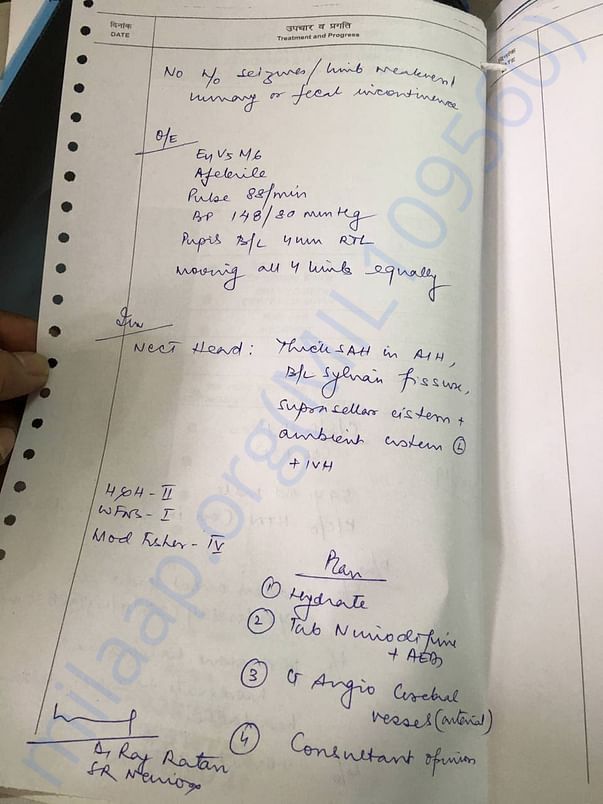 दिनांक
DATE
उपचार व प्रगति
Treatment and Progress
दिनांक
DATE
No h/o seizures/limb weakness
urinary or fecal incontinence
O/E
E4V5M6
Afebrile
Pulse 88/min
BP 148/80 mmHg
Pupils B/L 4mm RTL
moving all 4 limbs equally
Inv
NCCT Head: Thick SAH in AIH,
B/L sylvian fissure,
suprasellar cistern +
ambient cistern (L)
+ IVH
H&H - II
WFNS - I
Mod Fisher - IV
Plan
① Hydrate
② Tab Nimodipine
+ AEDs
③ CT Angio Cerebral
vessels (arterial)
④ Consultant opinion
Dr Raj Ratan
SR Neuro
milaap.org(MIL109560)